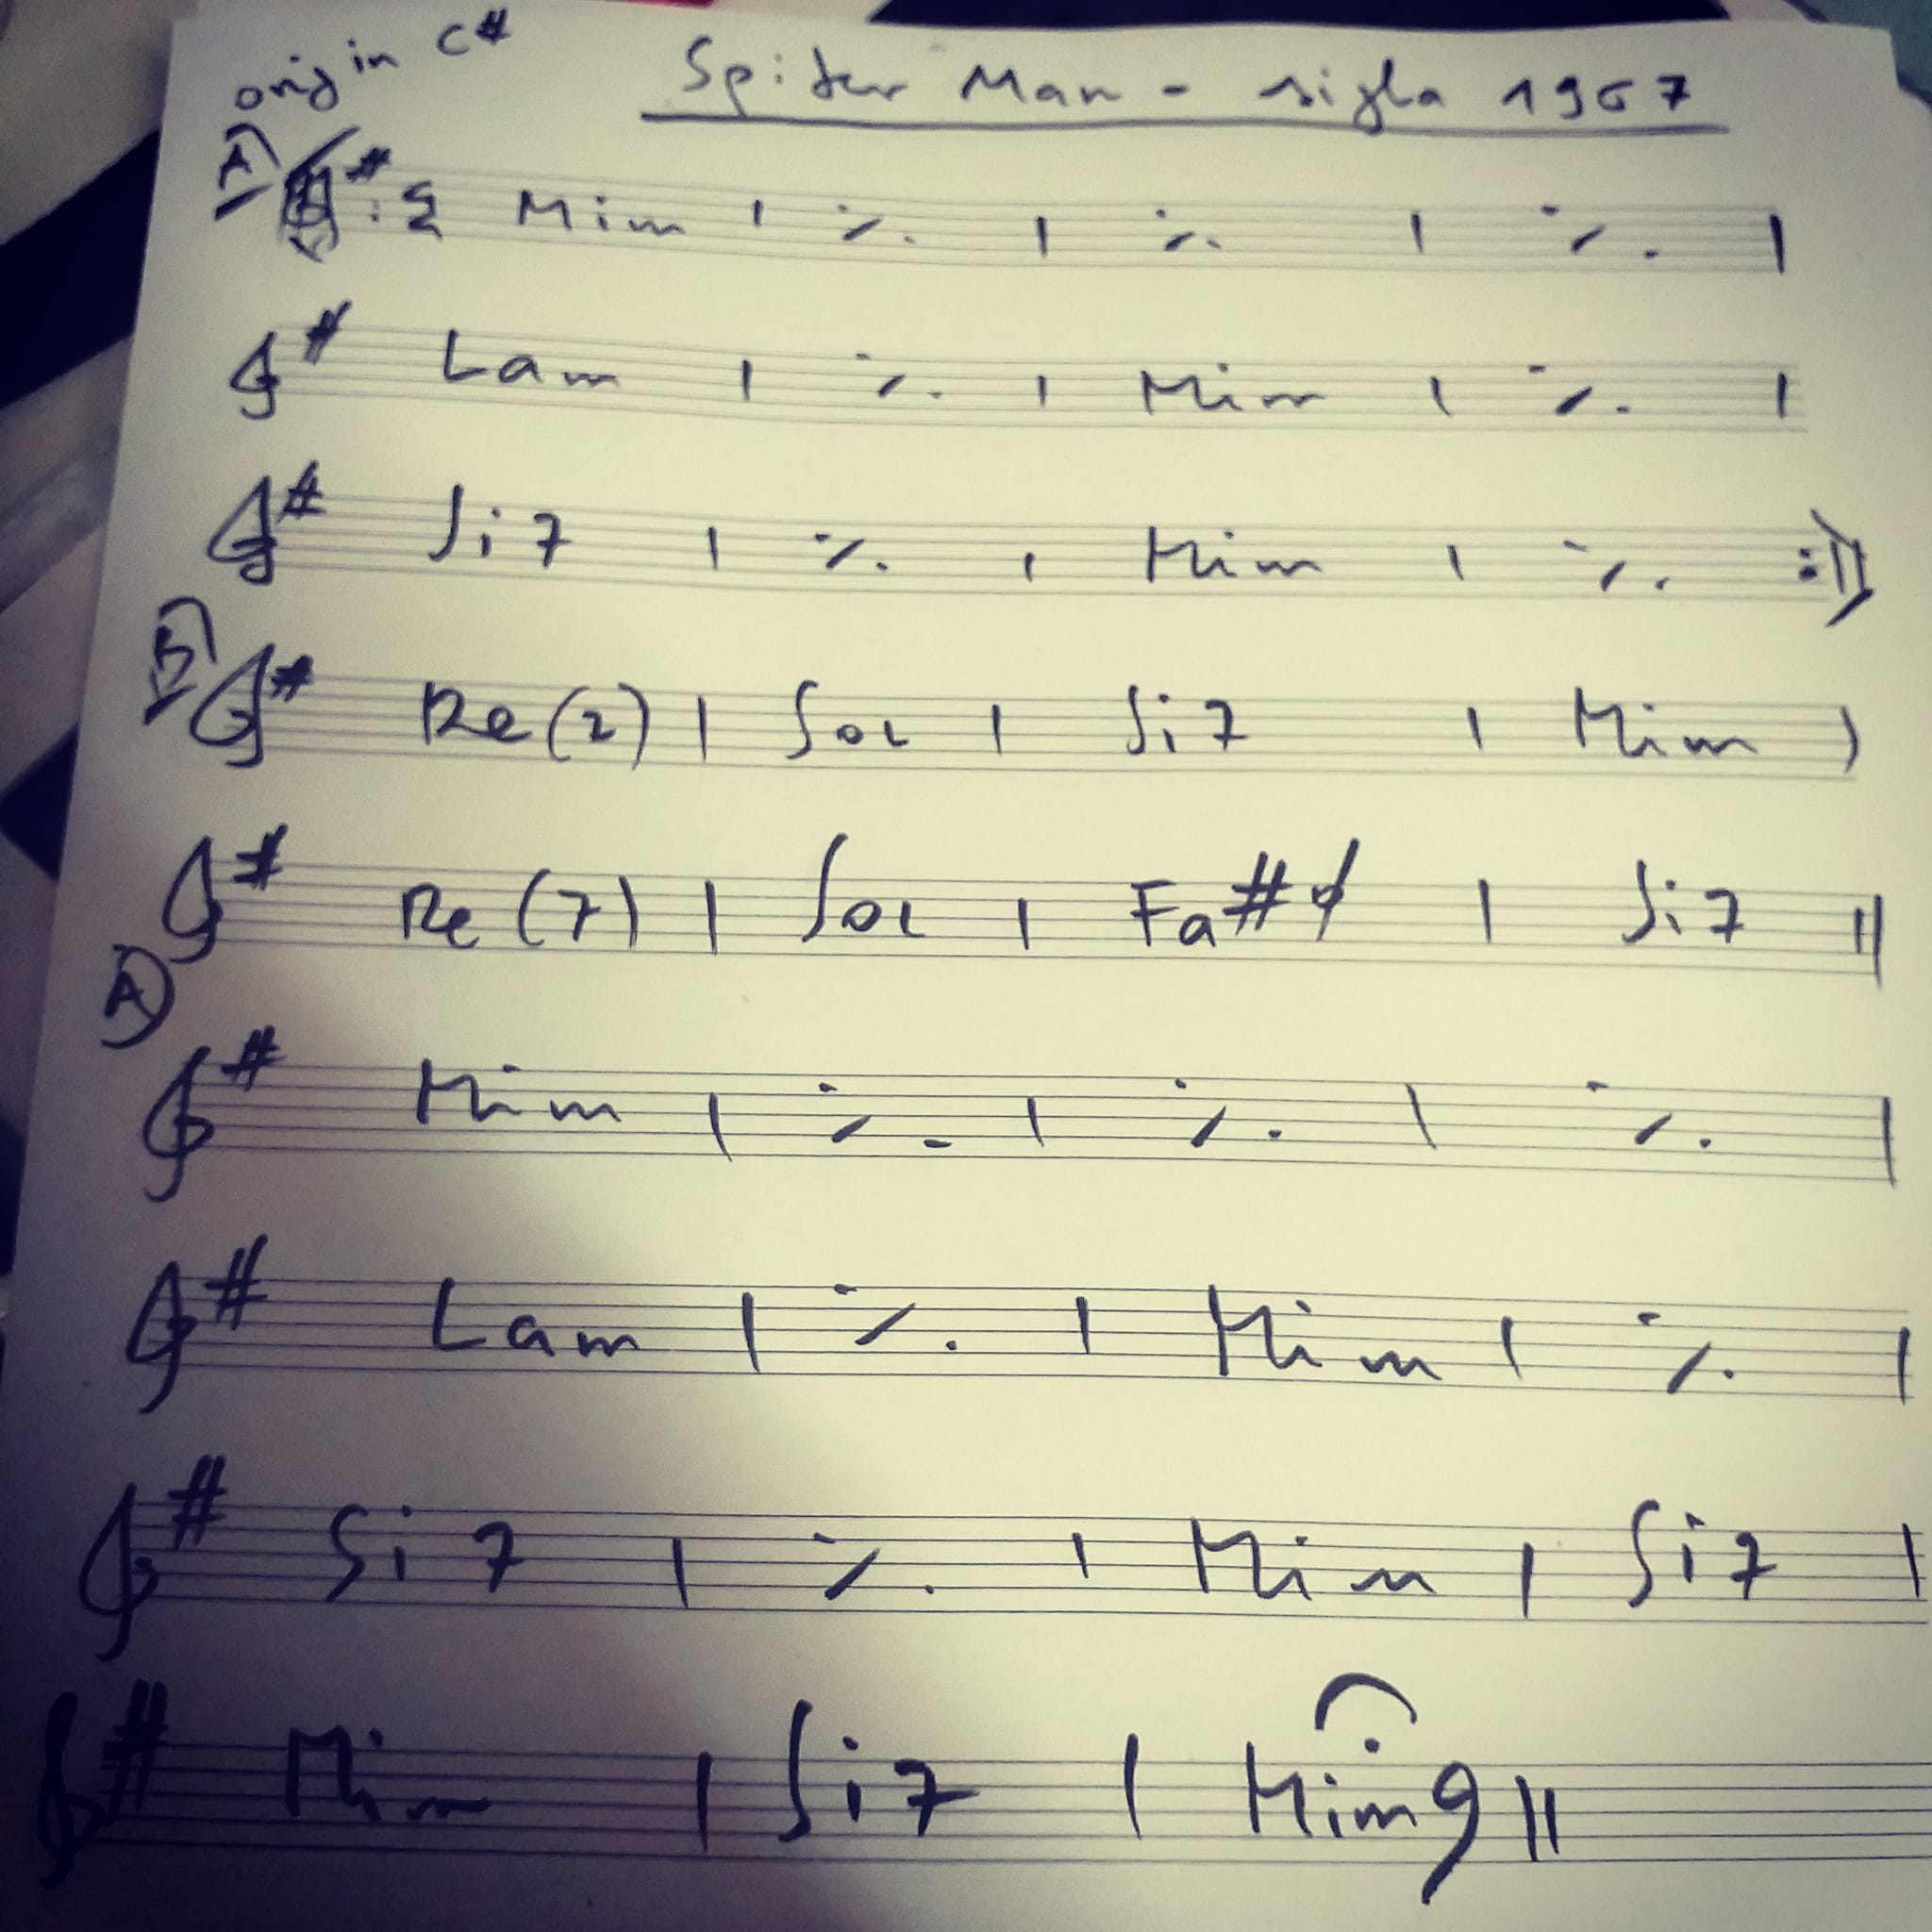 origin C#
Spider Man - sigla 1967
A)
Mim | ٪ | ٪ | ٪ |
Lam | ٪ | Mim | ٪ |
Si7 | ٪ | Mim | ٪ :||
B)
Re(7) | Sol | Si7 | Mim |
Re(7) | Sol | Fa#ø | Si7 ||
A)
Mim | ٪ | ٪ | ٪ |
Lam | ٪ | Mim | ٪ |
Si7 | ٪ | Mim | Si7 |
Mim | Si7 | Mim9 ||